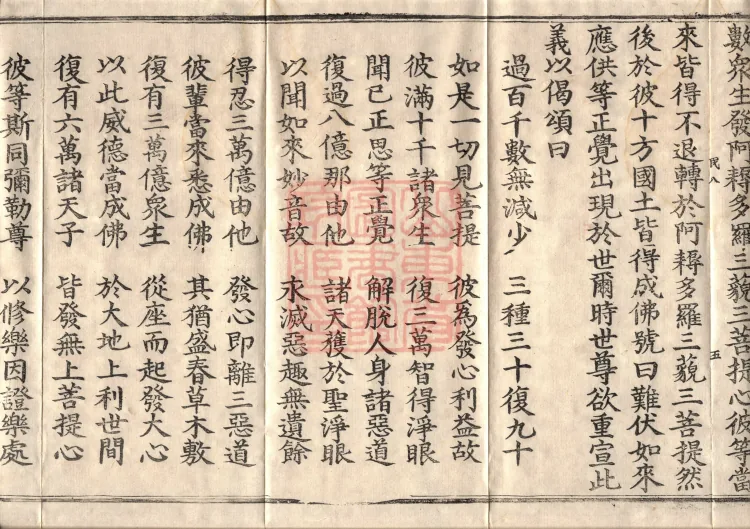 數衆生發阿耨多羅三藐三菩提心彼等當
來皆得不退轉於阿耨多羅三藐三菩提然
後於彼十方國土皆得成佛號曰難伏如來
應供等正覺出現於世爾時世尊欲重宣此
義以偈頌曰
過百千數無減少 三種三十復九十
如是一切見菩提 彼為發心利益故
彼滿十千諸衆生 復三萬智得淨眼
聞已正思等正覺 解脫人身諸惡道
復過八億那由他 諸天獲於聖淨眼
以聞如來妙音故 永滅惡趣無遺餘
得忍三萬億由他 發心即離三惡道
彼輩當來悉成佛 其猶盛春草木敷
復有三萬億衆生 從座而起發大心
以此威德當成佛 於大地上利世間
復有六萬諸天子 皆發無上菩提心
彼等斯同彌勒尊 以修樂因證樂處
民八
五